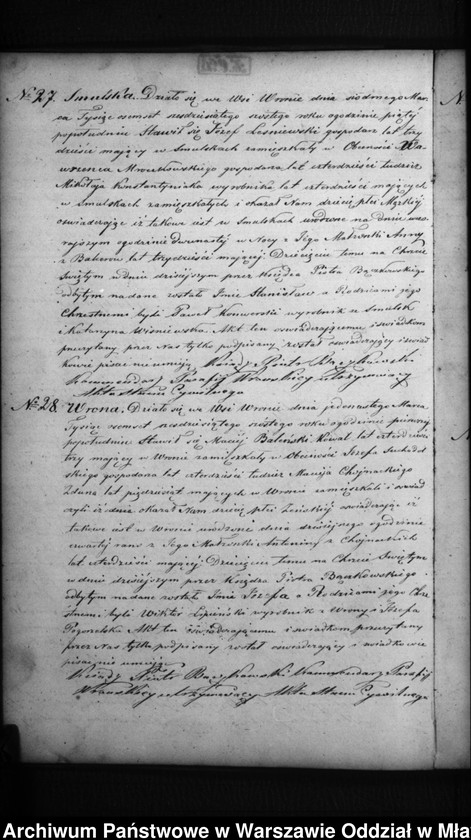 No 27. Smulska. Działo się we Wsi Wronie dnia siódmego Mar-
ca Tysiąc ośmset sześćdziesiątego szóstego roku o godzinie piątej
popołudniu Stawił się Józef Leśniewski gospodarz lat trzy
dzieści mający w Smulskach zamieszkały w Obecności Wa-
wrzeńca gospodarza lat czterdzieści tudzież
Mikołaja Konstantyniaka wyrobnika lat czterdzieści mających
w Smulskach zamieszkałych i okazał Nam dziecię płci Męzkiej
oświadczając iż takowe iest w Smulskach urodzone na dniu wczo-
rajszym o godzinie dwunastej w Nocy z Jego Małżonki Anny
z lat trzydzieści mającej. Dziecięciu temu na Chrzcie
Świętym w dniu dzisiejszym przez Księdza Piotra Bączkowskiego
odbytym nadane zostało Imie Stanisław a Rodzicami jego
Chrzestnemi byli Paweł wyrobnik z Smulsk
i Katarzyna Wiśniewska. Akt ten oświadczającemu i świadkom
przeczytany przez Nas tylko podpisany został oświadczający i świad
kowie pisać nieumieją Ksiądz Piotr Bączkowski
Kommendarz Parafij Wronskiey utrzymujący
Akta Stanu Cywilnego
No 28. Wrona. Działo się we Wsi Wronie dnia jedenastego Marca
Tysiąc ośmset sześćdziesiątego szóstego roku o godzinie pierwszej
popołudniu Stawił się Maciej Baliński Kowal lat czterdzieści
trzy mający w Wronie zamieszkały w Obecności Józefa
skiego gospodarza lat czterdzieści tudzież Macieja Chojnackiego
lat pięćdziesiąt mających w Wronie zamieszkali i oświad
czyli iż dnia okazał Nam dziecię płci Żeńskiej oświadczając iż
takowe iest w Wronie urodzone dnia dzisiejszego o godzinie
czwartej rano z Jego Małżonki Antoniny z Chojnackich
lat czterdzieści mającej Dziecięciu temu na Chrzcie Świętym
w dniu dzisiejszym przez Księdza Piotra Bączkowskiego
odbytym nadane zostało Imie Józefa a Rodzicami jego Chrze
stnemi byli Wiktor Lipiński wyrobnik z Wrony i Józefa
Pogorzelska Akt ten oświadczającemu i świadkom przeczytany
przez Nas tylko podpisany został oświadczający i świadkowie
pisać nie umieją
Ksiądz Piotr Bączkowski Kommendarz Parafij
Wronskiey utrzymujący Akta Stanu Cywilnego
Archiwum Państwowe w Warszawie Oddział w Mła